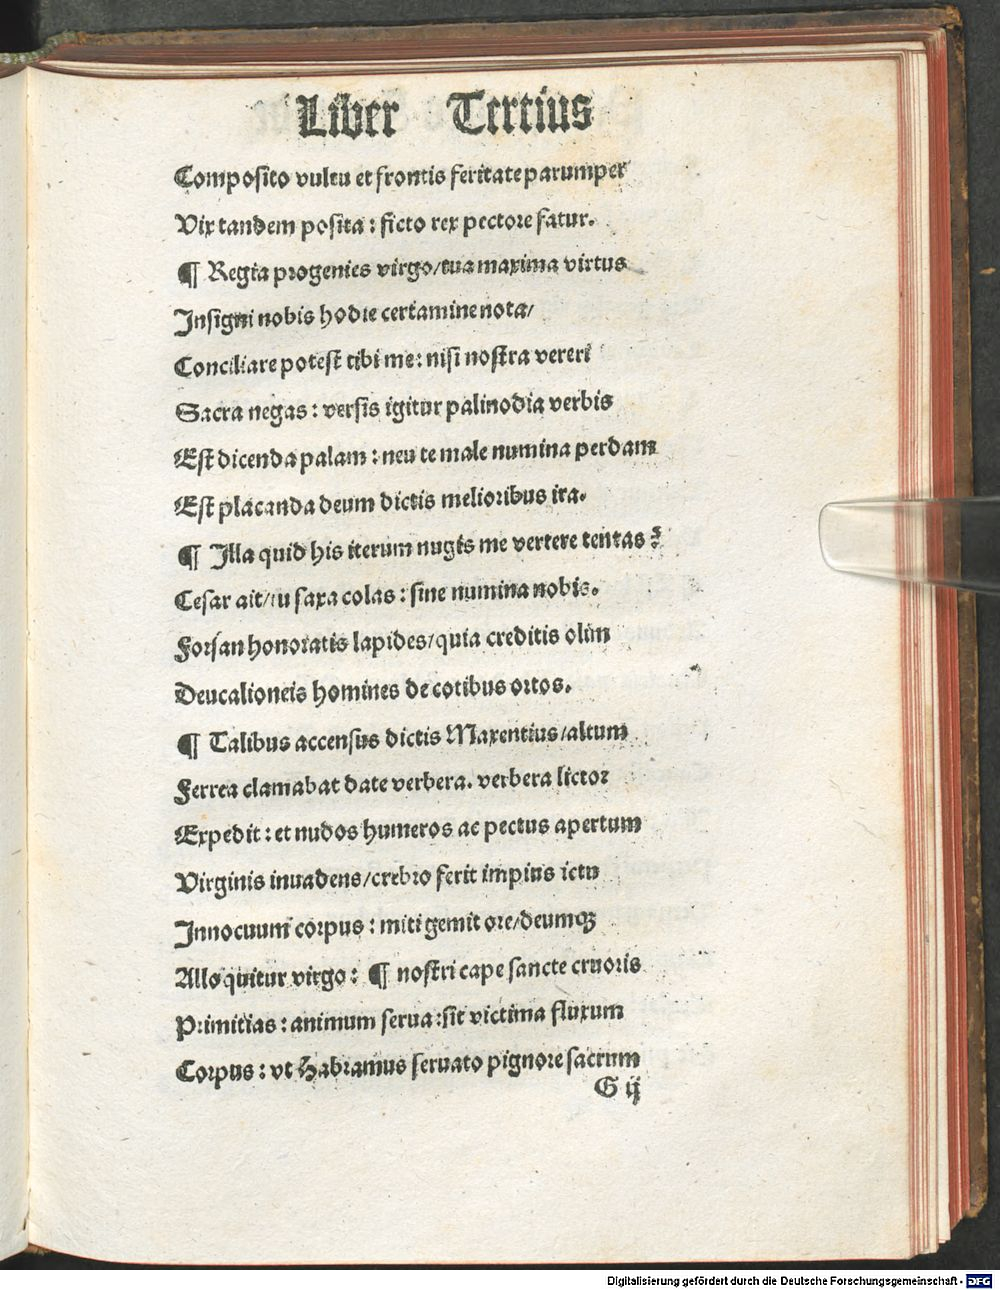 Liber Tertius
Composito vultu et frontis feritate parumper
Vix tandem posita : ficto rex pectore fatur.
¶ Regia progenies virgo/tua maxima virtus
Insigni nobis hodie certamine nota/
Conciliare potest tibi me: nisi nostra vereri
Sacra negas : versis igitur palinodia verbis
Est dicenda palam : neu te male numina perdam
Est placanda deum dictis melioribus ira.
¶ Illa quid his iterum nugis me vertere tentas ?
Cesar ait/tu saxa colas : sine numina nobis.
Forsan honoratis lapides/quia creditis olim
Deucalioneis homines de cotibus ortos.
¶ Talibus accensus dictis Maxentius/altum
Ferrea clamabat date verbera. verbera lictor
Expedit : et nudos humeros ac pectus apertum
Virginis inuadens/crebro ferit impius ictu
Innocuum corpus : miti gemit ore/deumqꝫ
Alloquitur virgo : ¶ nostri cape sancte cruoris
Primitias : animum serua :sit victima fluxum
Corpus : vt Habramus seruato pignore sacrum
G ij
Digitalisierung gefördert durch die Deutsche Forschungsgemeinschaft - DFG